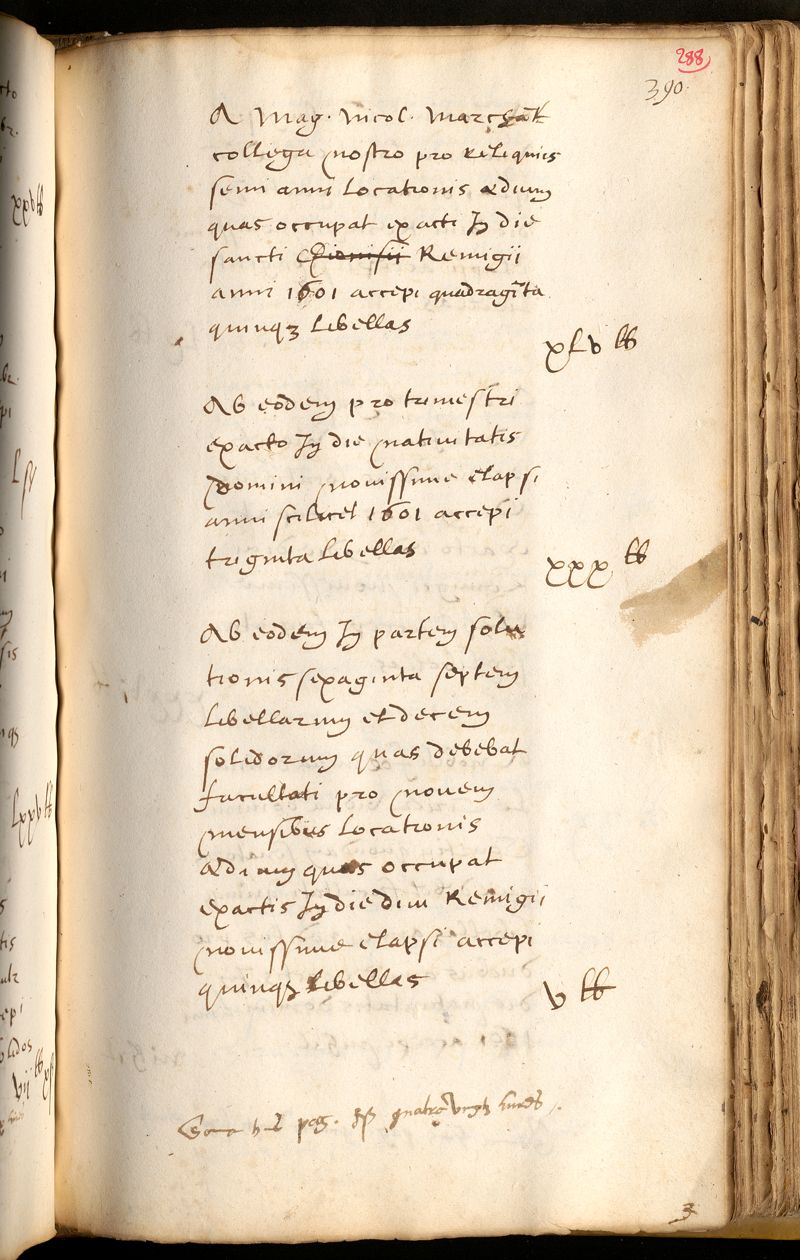 288
390.
A Mag. Nicol. Marcsat
collega nostro pro reliquiis
semi anni locationis ædium
quas occupat exacti In die
sancti Dionisii Remigii
anni 1601 accepi quadragĩta
quinq3 libellas
xlv ℔
Ab eodem pro trimestri
exacto In die nativitatis
Domini novissime elapsi
anni scilicet 1601 accepi
triginta libellas
xxx ℔
Ab eodem In partem solu
tionis sexaginta septem
libellarum et decem
solidorum quas debebat
facultati pro novem
mensibus locationis
ædium quas occupat
exactis In die divi Remigii
novissime elapsi accepi
quinq3 libellas
v ℔
pag.
3